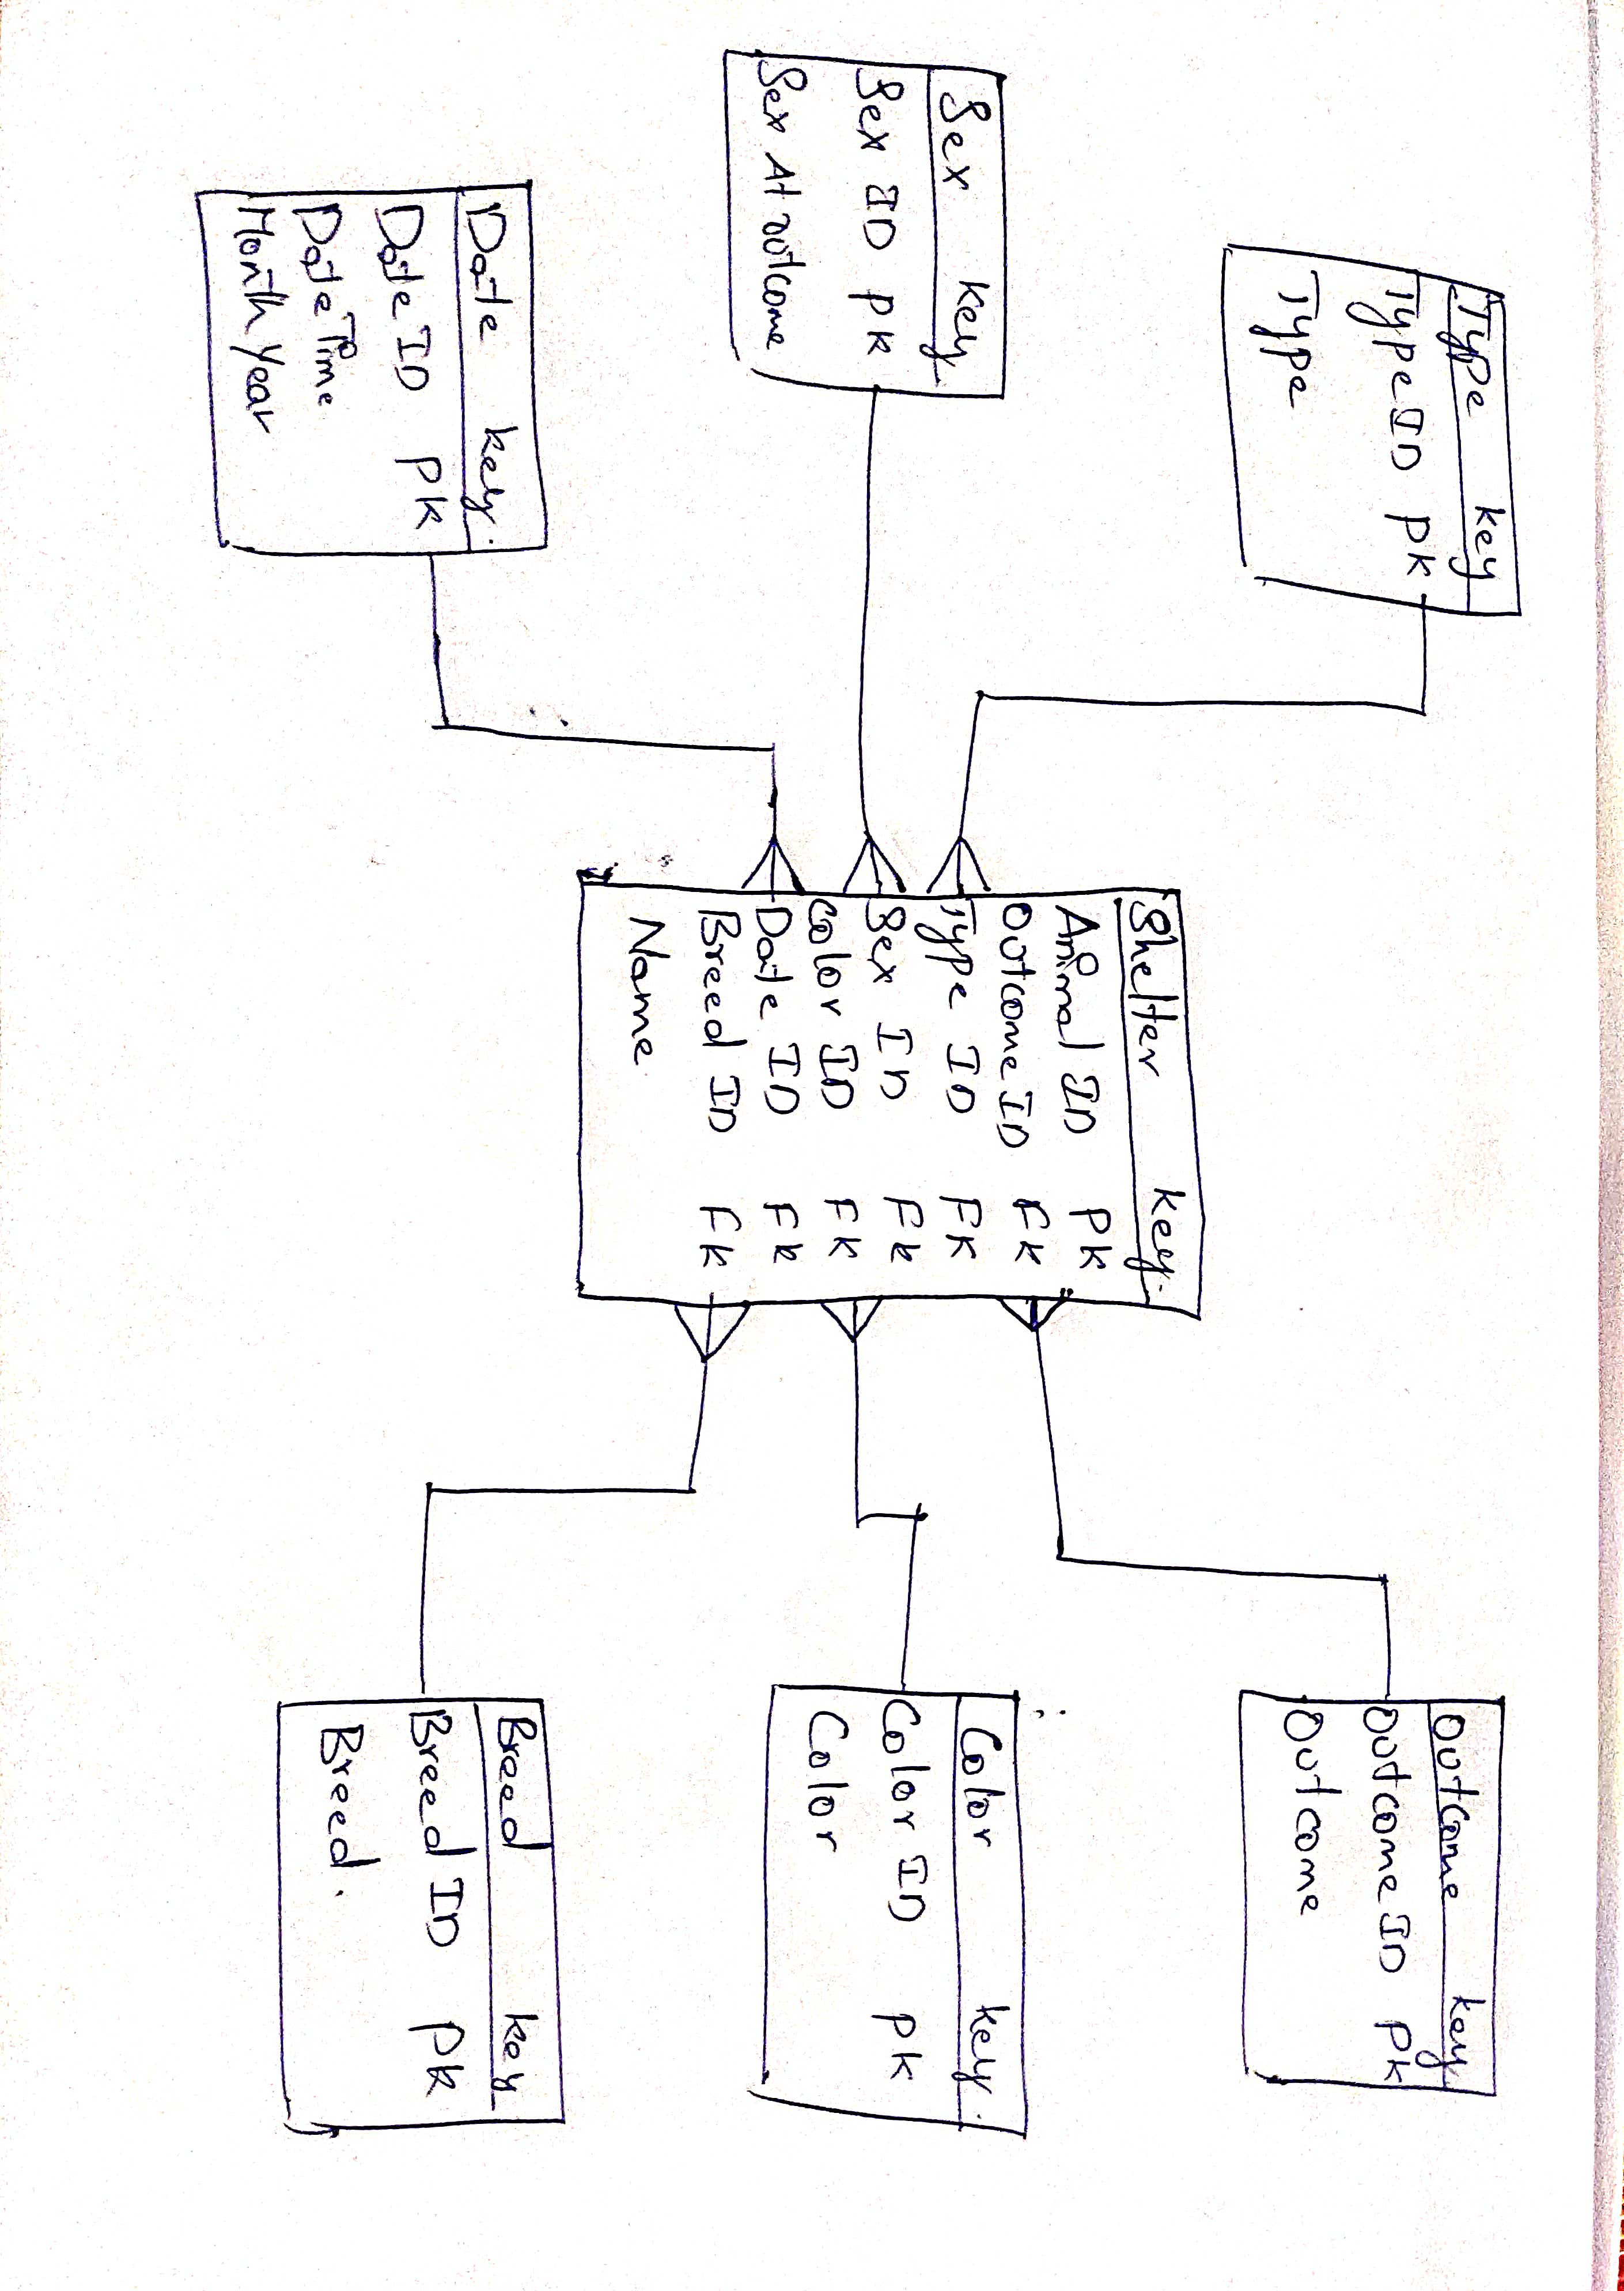 Type key
Type ID PK
Type
Sex key.
Sex ID PK
Sex At outcome
Date key.
Date ID PK
DateTime
Month Year
Shelter key.
Animal ID PK
Outcome ID FK
Type ID FK
Sex ID FK
Color ID FK
Date ID FK
Breed ID FK
Name
Outcome key
Outcome ID PK
Outcome
Color key.
Color ID PK
Color
Breed key
Breed ID PK
Breed.